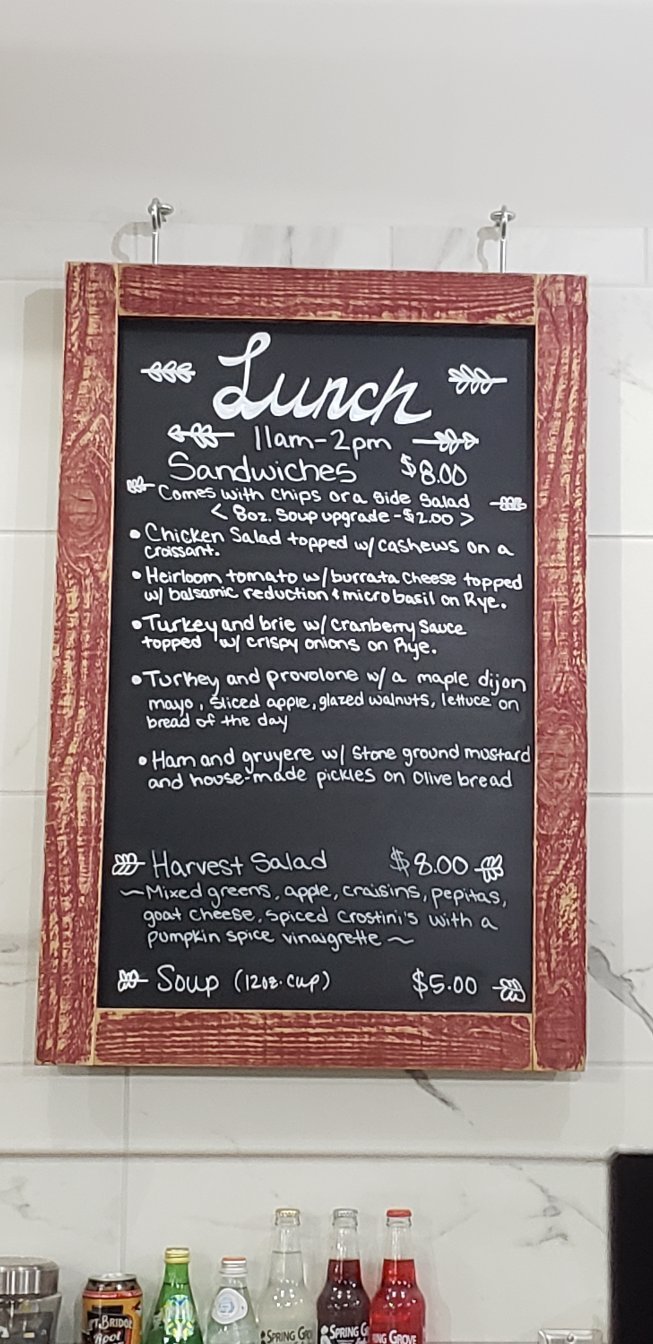 Lunch
11am-2pm
Sandwiches $8.00
Comes with chips or a side salad
< 8oz. Soup upgrade - $2.00 >
• Chicken Salad topped w/ cashews on a
croissant.
• Heirloom tomato w/ burrata cheese topped
w/ balsamic reduction & micro basil on Rye.
• Turkey and brie w/ cranberry sauce
topped w/ crispy onions on Rye.
• Turkey and provolone w/ a maple dijon
mayo, sliced apple, glazed walnuts, lettuce on
bread of the day
• Ham and gruyere w/ Stone ground mustard
and house-made pickles on Olive bread
Harvest Salad $8.00
~Mixed greens, apple, craisins, pepitas,
goat cheese, spiced crostini's with a
pumpkin spice vinaigrette ~
Soup (12oz. cup) $5.00
Root
SPRING
SPRING
GROVE